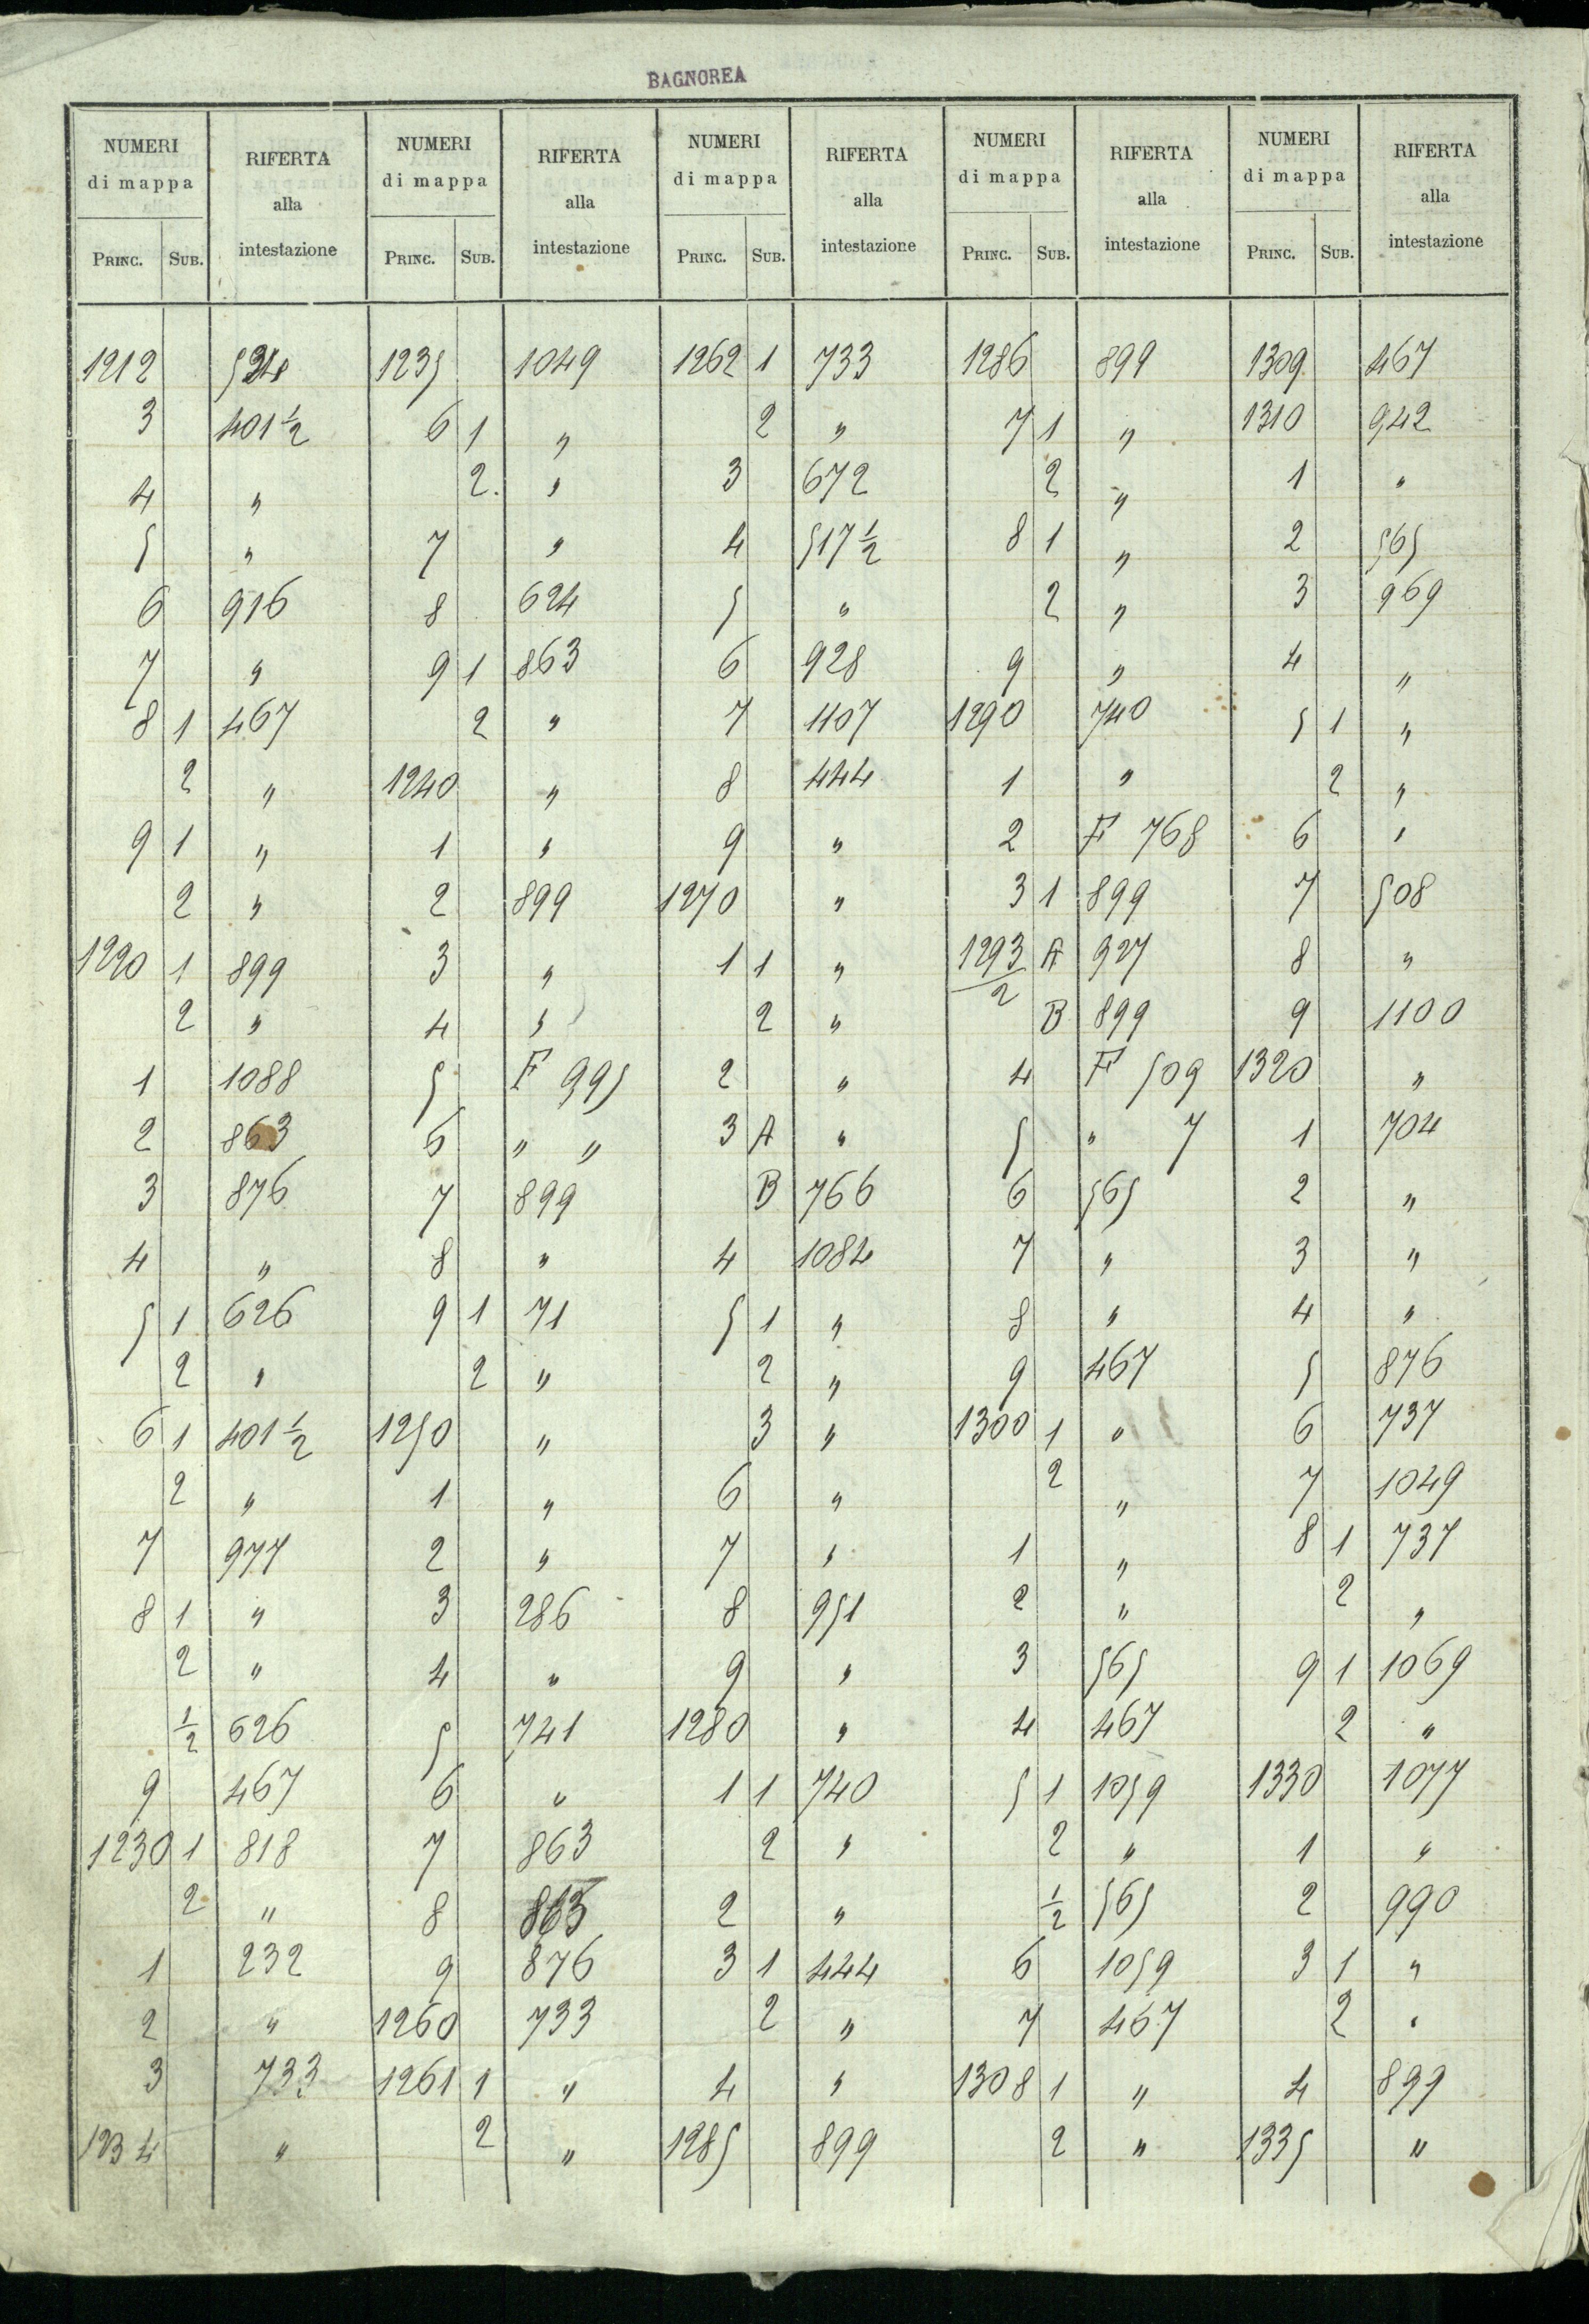 BAGNOREA
NUMERI di mappa RIFERTA alla intestazione NUMERI di mappa RIFERTA alla intestazione NUMERI di mappa RIFERTA alla intestazione NUMERI di mappa RIFERTA alla intestazione NUMERI di mappa RIFERTA alla intestazione
PRINC. SUB. PRINC. SUB. PRINC. SUB. PRINC. SUB. PRINC. SUB.
1212 1235 1049 1262 1 733 1286 899 1309 467
3 401 1/2 6 1 " 2 " 7 1 " 1310 942
4 " 2 " 3 672 2 " 1 "
5 " 7 " 4 517 1/2 8 1 " 2 565
6 916 8 624 5 " 2 " 3 969
7 " 9 1 863 6 928 9 " 4 "
8 1 467 2 " 7 1107 1290 740 5 1 "
2 " 1240 " 8 444 1 " 2 "
9 1 " 1 " 9 " 2 F 768 6 "
2 " 2 899 1270 " 3 1 899 7 508
1220 1 899 3 " 1 1 " 1293/2 A 927 8 "
2 " 4 " 2 " B 899 9 1100
1 1088 5 F 995 2 " 4 F 509 1320 "
2 863 6 " " 3 A " 5 " 7 1 704
3 876 7 899 B 766 6 565 2 "
4 " 8 " 4 1084 7 " 3 "
5 1 626 9 1 71 5 1 " 8 " 4 "
2 " 2 " 2 " 9 467 5 876
6 1 401 1/2 1250 " 3 " 1300 1 " 6 737
2 " 1 " 6 " 2 " 7 1049
7 977 2 " 7 " 1 " 8 1 737
8 1 " 3 286 8 951 2 " 2 "
2 " 4 " 9 " 3 565 9 1 1069
1/2 626 5 741 1280 " 4 467 2 "
9 467 6 " 1 1 740 5 1 1059 1330 1077
1230 1 818 7 863 2 " 2 " 1 "
2 " 8 863 2 " 1/2 565 2 990
1 232 9 876 3 1 444 6 1059 3 1 "
2 " 1260 733 2 " 7 467 2 "
3 733 1261 1 " 4 " 1308 1 " 4 899
1234 " 2 " 1285 899 2 " 1335 "